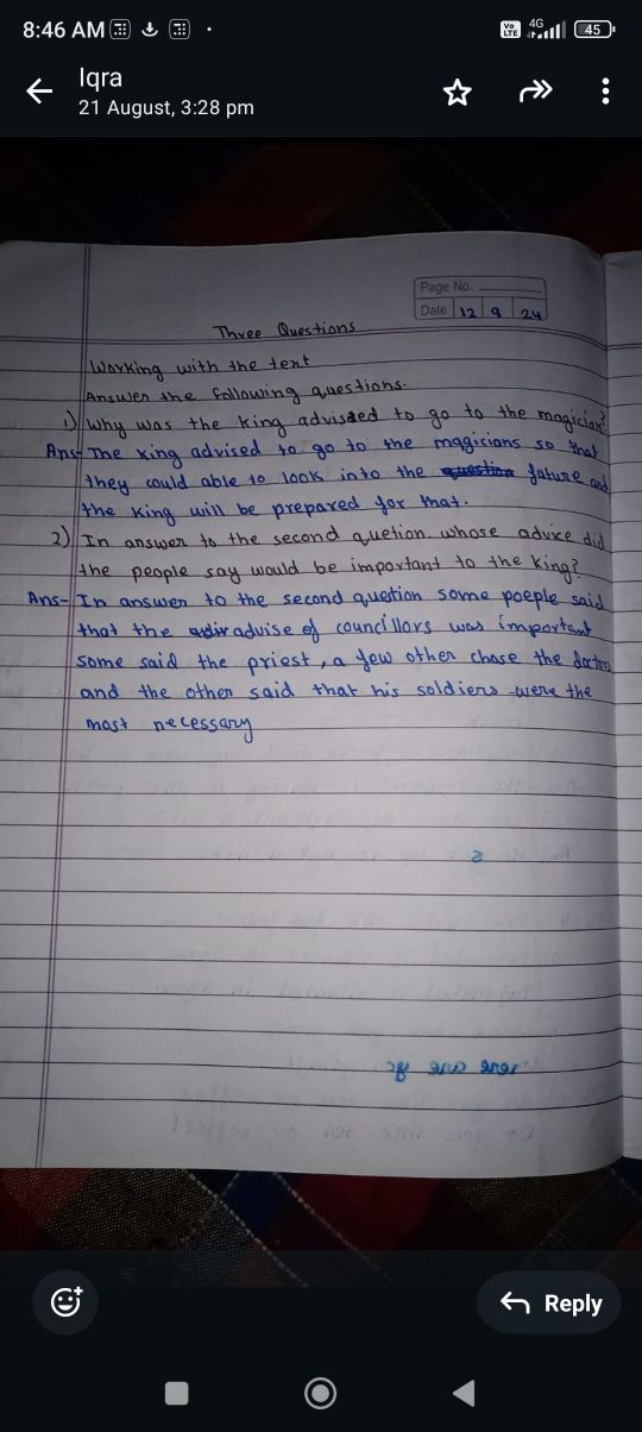 8:46 AM
Vo LTE 4G 45
Iqra
21 August, 3:28 pm
Page No.
Date 12 9 24
Three Questions
Working with the text
Answer the following questions.
1) Why was the king advised to go to the magician?
Ans- The king advised to go to the magicians so that
they could able to look into the question future and
the king will be prepared for that.
2) In answer to the second quetion. whose advice did
the people say would be important to the king?
Ans- In answer to the second question some poeple said
that the advise of councillors was important
some said the priest, a few other chose the doctors
and the other said that his soldiers were the
most necessary
Reply